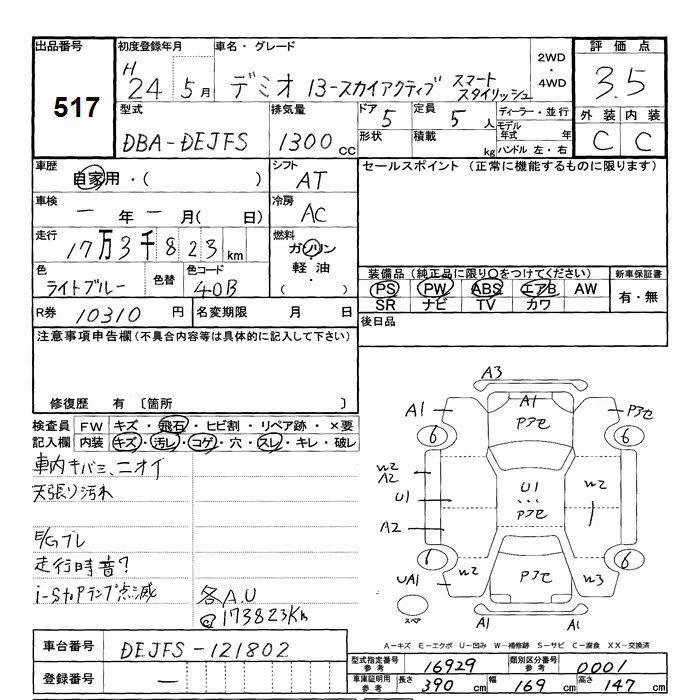 出品番号 初度登録年月 車名・グレード 2WD・4WD 評価点
517 H 24 5月 デミオ 13-スカイアクティブ スマート スタイリッシュ 3.5
型式 排気量 ドア 5 定員 5人 ディーラー・並行 外装 内装
DBA-DEJFS 1300cc 形状 積載 kg モデル年式 年 ハンドル 左・右 C C
車歴 自家用・( ) シフト AT セールスポイント (正常に機能するものに限ります)
車検 一年一月( 日) 冷房 AC
走行 17万3千823km 燃料 ガソリン・軽油・( )
色 ライトブルー 色替 色コード 40B 装備品(純正品に限り○をつけてください) 新車保証書
PS PW ABS エアB AW 有・無
SR ナビ TV カワ
R券 10310円 名変期限 月 日 後日品
注意事項申告欄(不具合内容等は具体的に記入して下さい)
修復歴 有 〔箇所 〕
検査員 FW キズ・飛石・ヒビ割・リペア跡・×要
記入欄 内装 キズ・汚レ・コゲ・穴・スレ・キレ・破レ
車内キバミ、ニオイ
天張り汚れ
E/Gブレ
走行時音?
i-Stopランプ点滅
各A.U
@173823Km
A3
A1 A1 Pアセ Pアセ
6 6
W2 A2 U1 U1 Pアセ W2
A2
6 6
UA1 W2 Pアセ W3
スペア A1 A1
A-キズ E-エクボ U-凹み W-補修跡 S-サビ C-腐食 XX-交換済
車台番号 DEJFS-121802
登録番号 一
型式指定番号 参考 16929 類別区分番号 参考 0001
車庫証明用 参考 長さ 390cm 幅 169cm 高さ 147cm